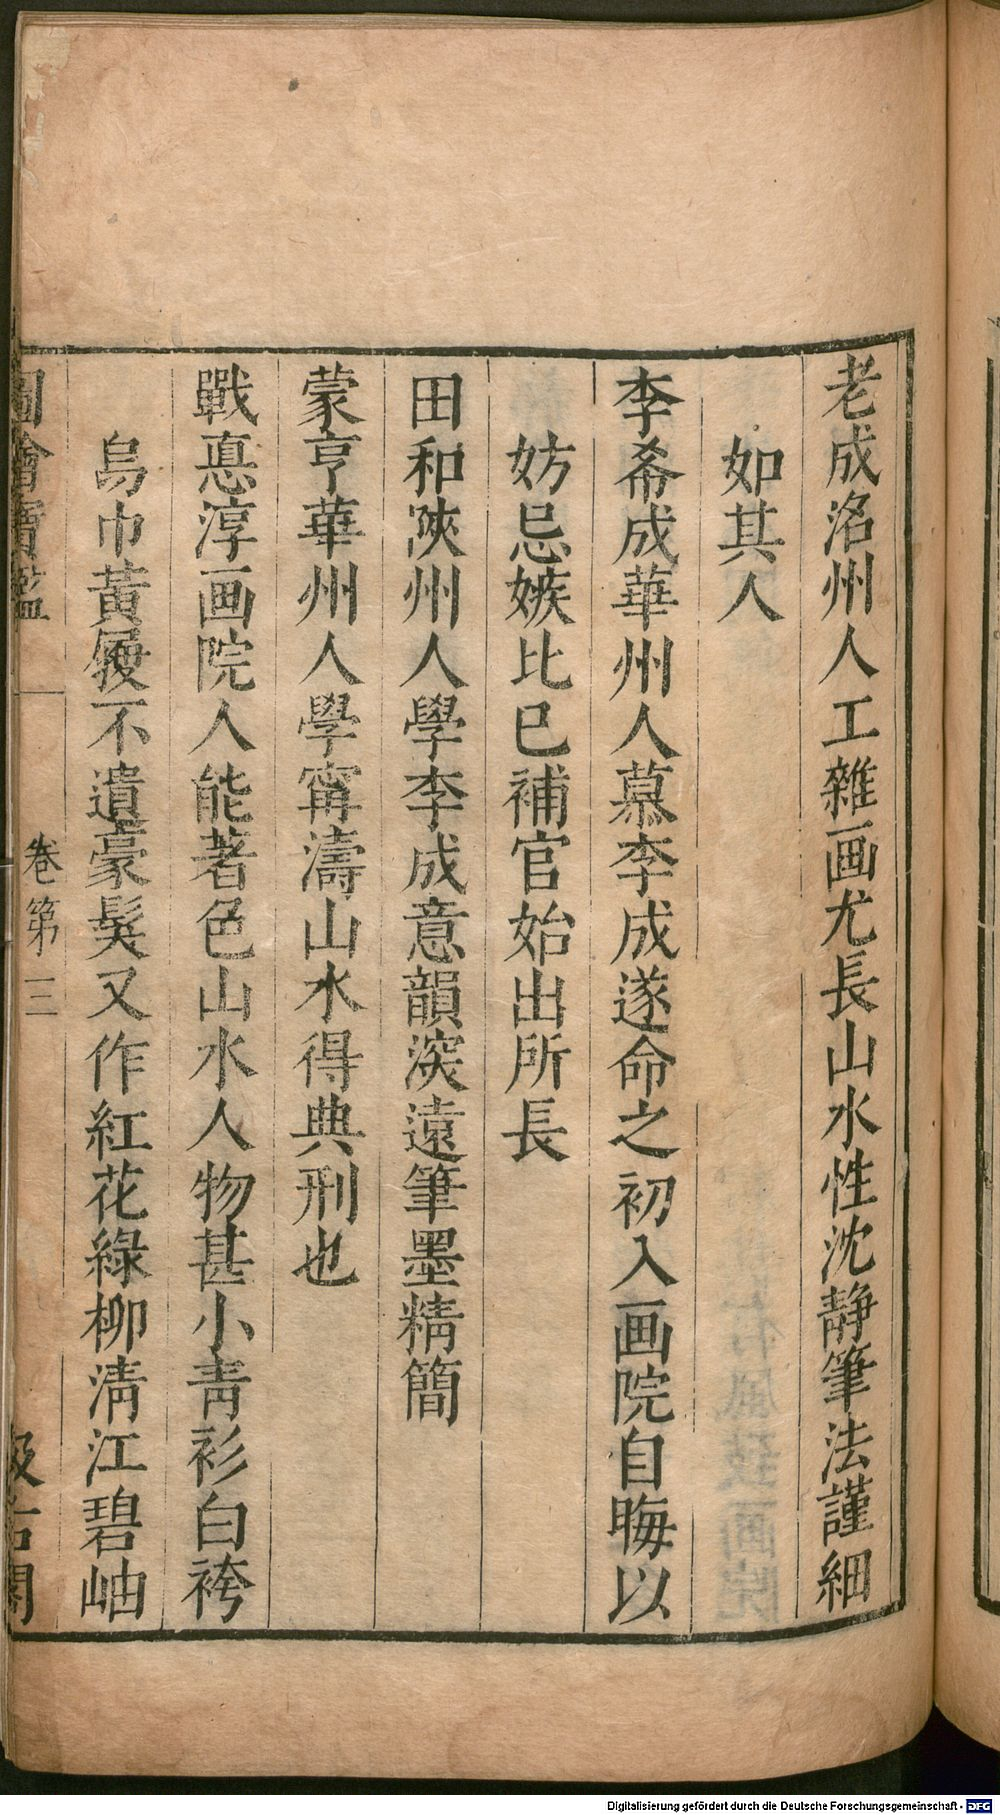 老成洺州人工雜画尤長山水性沈靜筆法謹細
如其人
李希成華州人慕李成遂命之初入画院自晦以
妨忌嫉比已補官始出所長
田和陝州人學李成意韻深遠筆墨精簡
蒙亨華州人學甯濤山水得典刑也
戰惪淳画院人能著色山水人物甚小靑衫白袴
烏巾黃履不遺豪髮又作紅花綠柳淸江碧岫
圖繪寶鑑
卷第三
汲古閣
Digitalisierung gefördert durch die Deutsche Forschungsgemeinschaft - DFG